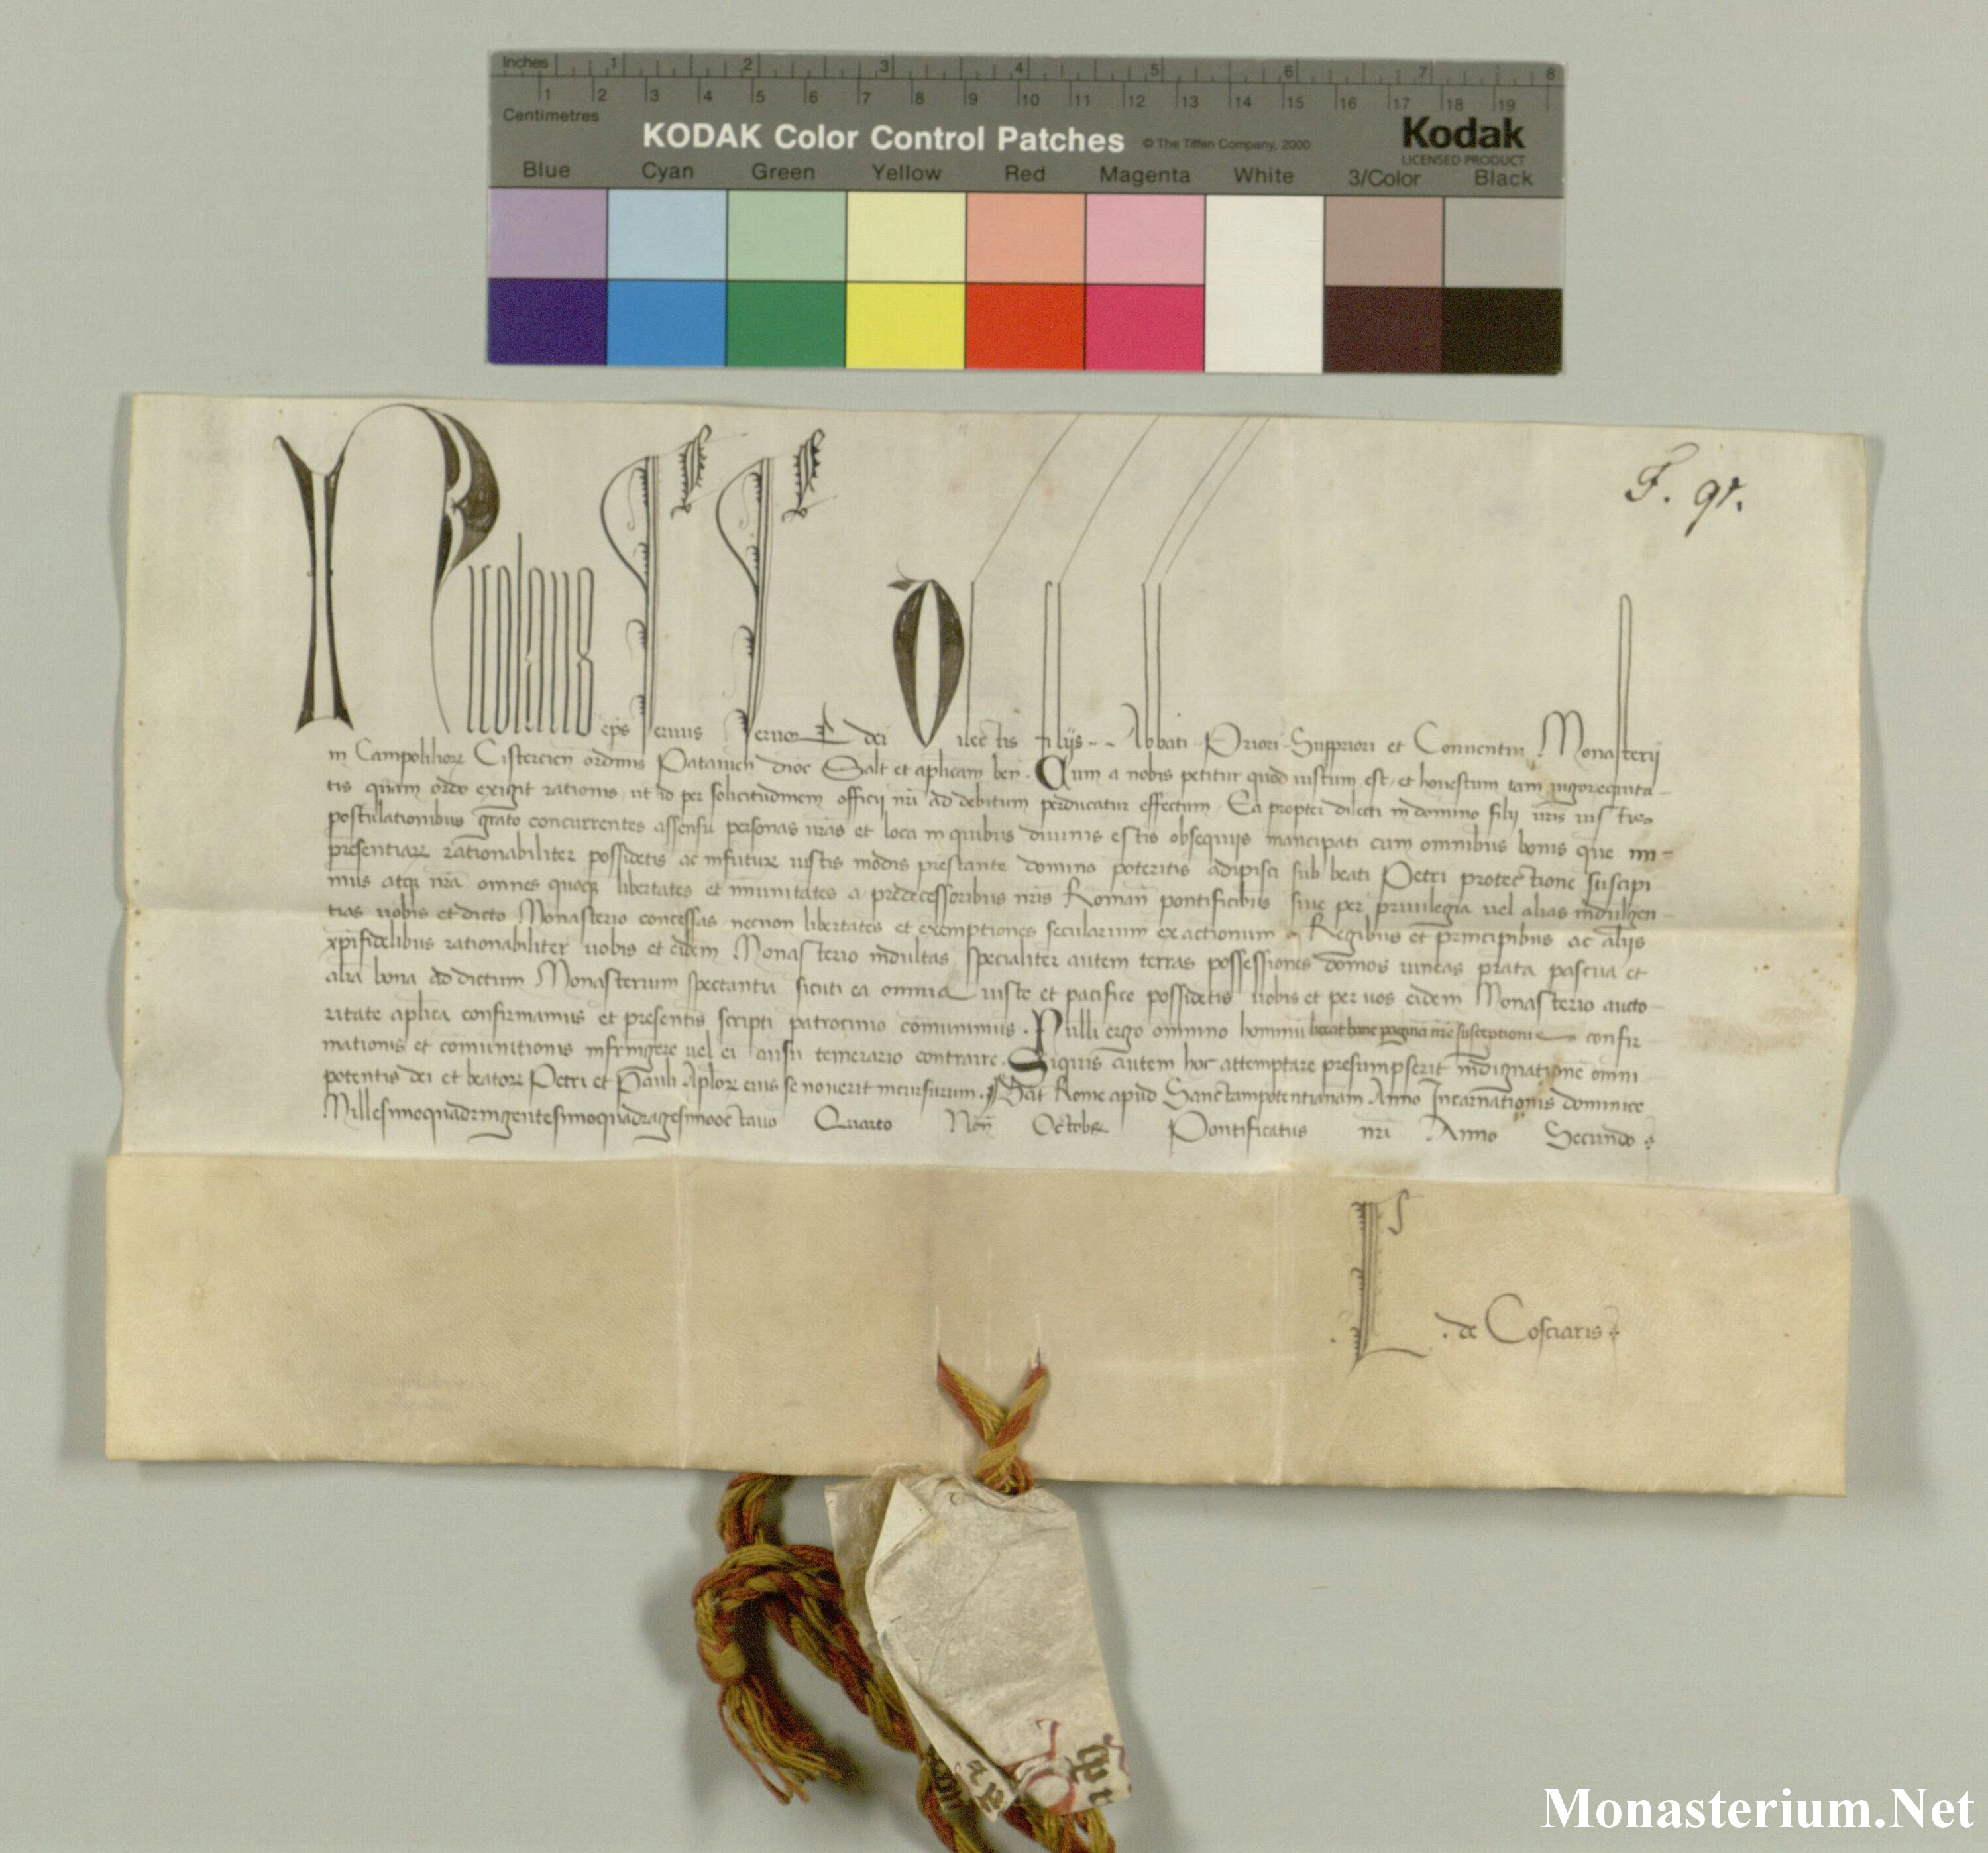 Inches 1 2 3 4 5 6 7 8
1 2 3 4 5 6 7 8 9 10 11 12 13 14 15 16 17 18 19
Centimetres
KODAK Color Control Patches © The Tiffen Company, 2000 Kodak
LICENSED PRODUCT
Blue Cyan Green Yellow Red Magenta White 3/Color Black
Nicolaus eps Seruus Seruor dei Dilectis filijs - - Abbati Priori Suppriori et Conuentui Monasterij
in Campoliliorz Cistercien ordinis Patauien dioc Salt et aplicam ben . Cum a nobis petitur quod iustum est et honestum tam uigor equita
tis quam ordo exigit rationis ut id per solicitudinem officij nri ad debitum perducatur effectum . Ea propter dilecti in domino filij uris iustis
postulationibus grato concurrentes assensu personas uras et loca in quibus diuinis estis obsequijs mancipati cum omnibus bonis que im
presentiarz rationabiliter possidetis ac infuturz iustis modis prestante domino poteritis adipisci sub beati Petri protectione suscipi
mus atqz nra omnes quoqz libertates et imunitates a predecessoribus nris Roman pontificibus siue per priuilegia uel alias indulgen
tias uobis et dicto Monasterio concessas necnon libertates et exemptiones secularium exactionum a Regibus et principibus ac alijs
xpifidelibus rationabiliter uobis et eidem Monasterio indultas specialiter autem terras possessiones domos uineas prata pascua et
alia bona ad dictum Monasterium spectantia sicuti ea omnia iuste et pacifice possidetis uobis et per uos eidem Monasterio aucto
ritate aplica confirmamus et presentis scripti patrocinio comunimus . Nulli ergo omnino hominu liceat hanc paginam nre susceptionis confir
mationis et comunitionis infringere uel ei ausu temerario contraire . Siquis autem hoc attemptare presumpserit indignationem omni
potentis dei et beatorz Petri et Pauli Aplorz eius se nouerit incursurum . Dat Rome apud Sanctampotentianam Anno Incarnationis dominice
Millesimoquadringentesimoquadragesimooctauo Quarto Non Octobr Pontificatus nri Anno Secundo
L . de Cosciaris
Monasterium.Net